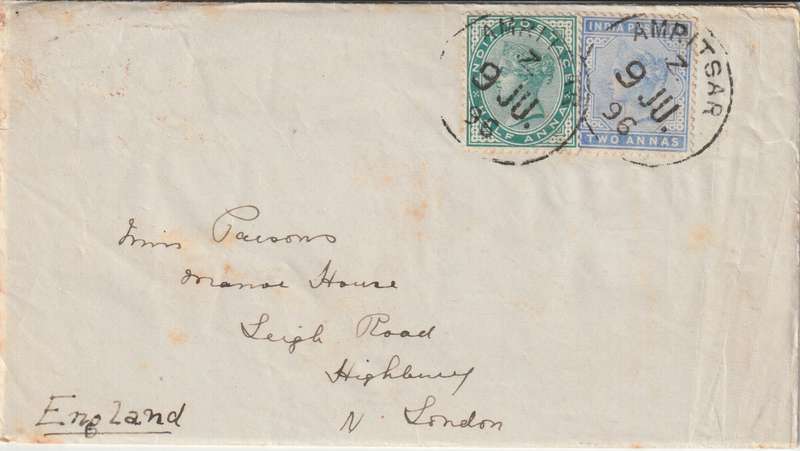 AMRITSAR
Z
9 JU.
96
INDIA POSTAGE
HALF ANNA
AMRITSAR
Z
9 JU.
96
INDIA POSTAGE
TWO ANNAS
Miss Parsons
Manor House
Leigh Road
Highbury
N. London
England